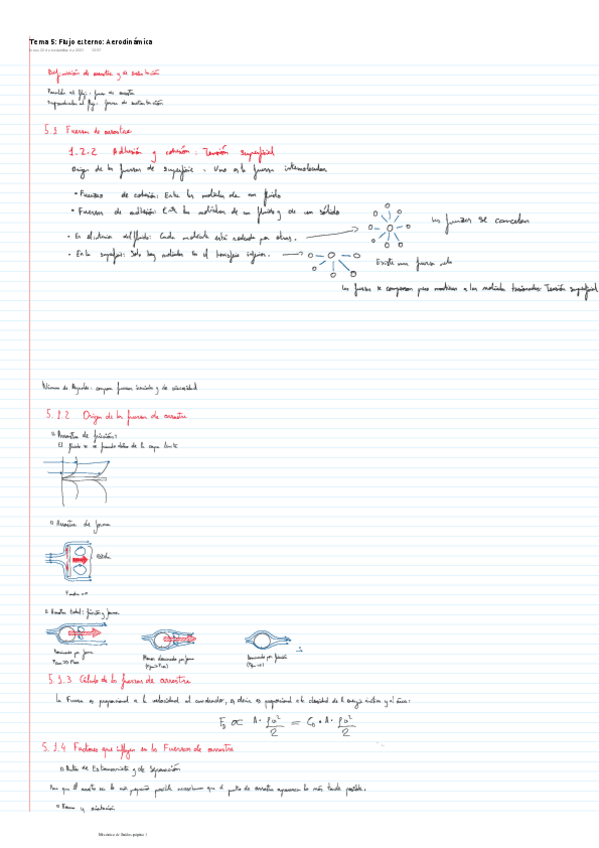 Tema 5: Flujo externo: Aerodinámica
Definición de arrastre y de sustentación
Paralela al flujo: fuerza de arrastre
Perpendicular al flujo: fuerza de sustentación
5.1 Fuerza de arrastre
1.2.2 Adhesión y cohesión: Tensión superficial
Origen de las fuerzas de superficie: fuerzas intermoleculares
• Fuerzas de cohesión: Entre las moléculas de un fluido
• Fuerzas de adhesión: Entre las moléculas de un fluido y de un sólido
• En el interior del fluido: Cada molécula está rodeada por otras.
las fuerzas se cancelan
• En la superficie: Solo hay moléculas en el hemisferio inferior.
Existe una fuerza neta
las fuerzas se compensan para mantener a las moléculas Tensión superficial
Número de Reynolds: compara fuerzas inerciales y de viscosidad
5.1.2 Origen de las fuerzas de arrastre
Arrastre de fricción:
El fluido se va frenando dentro de la capa límite
Arrastre de forma
Arrastre total: fricción y forma
Dominado por forma
Menos dominado por forma
Dominado por fricción
5.1.3 Cálculo de las fuerzas de arrastre
La Fuerza es proporcional a la velocidad al cuadrado, es decir es proporcional a la densidad de energía cinética y al área:
F_D ∝ A · ρv²/2 = C_D · A · ρv²/2
5.1.4 Factores que influyen en la Fuerza de arrastre
Puntos de Estancamiento y de separación
Para que el arrastre sea lo más pequeño posible necesitamos que el punto de arrastre aparezca lo más tarde posible.
Forma y orientación
Mecánica de fluidos página 1